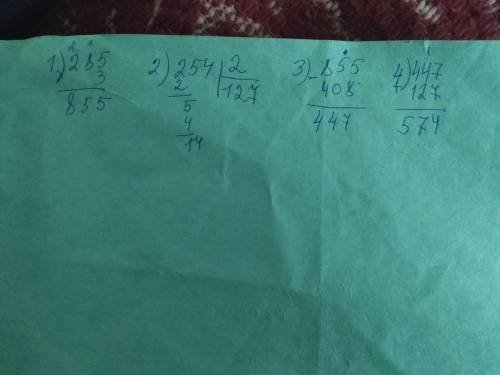 2 1
1) 285 2) 254 2 3) - 855 4) 447
3 2 127 408 127
855 5 447 574
4
14